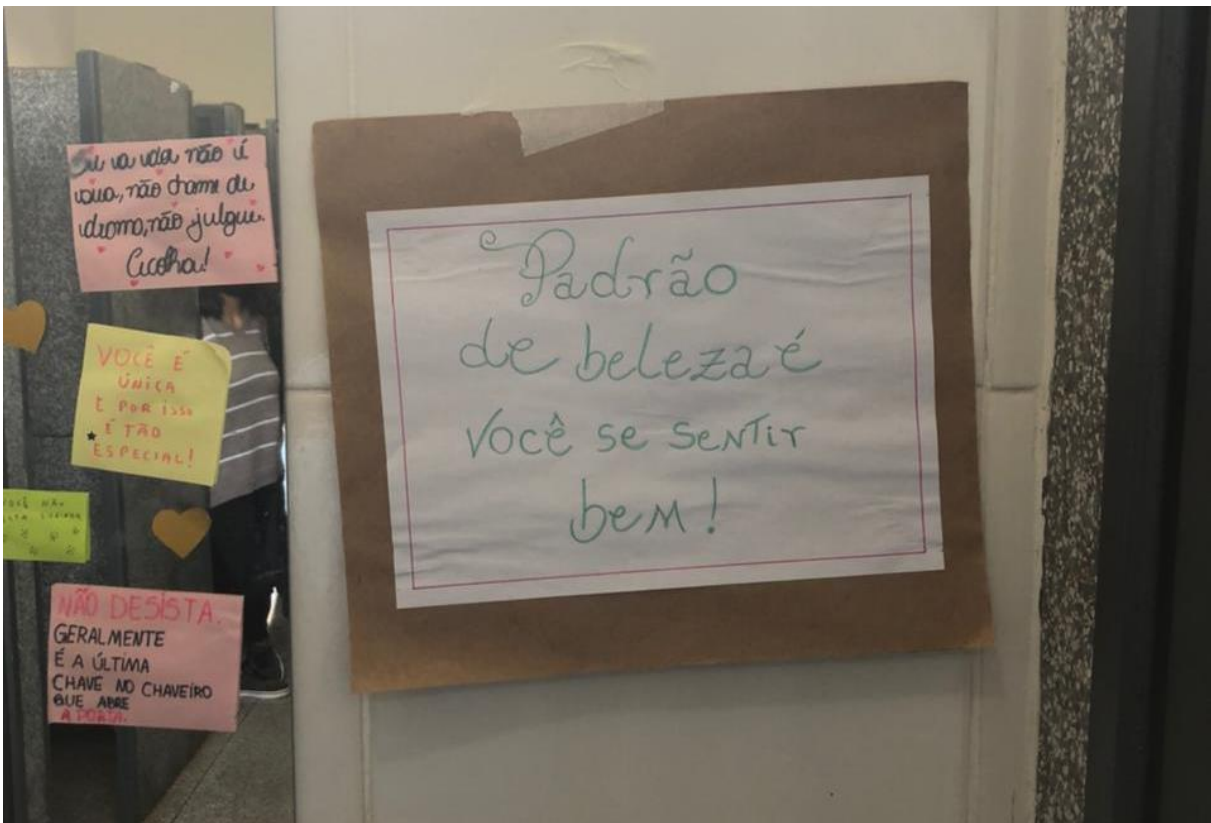 não é
não chame de
drama, não julgue.
Acolha!
VOCÊ É
ÚNICA
E POR ISSO
É TÃO
ESPECIAL!
VOCÊ NÃO
NÃO DESISTA.
GERALMENTE
É A ÚLTIMA
CHAVE NO CHAVEIRO
QUE ABRE
A PORTA.
Padrão
de beleza é
você se sentir
bem!